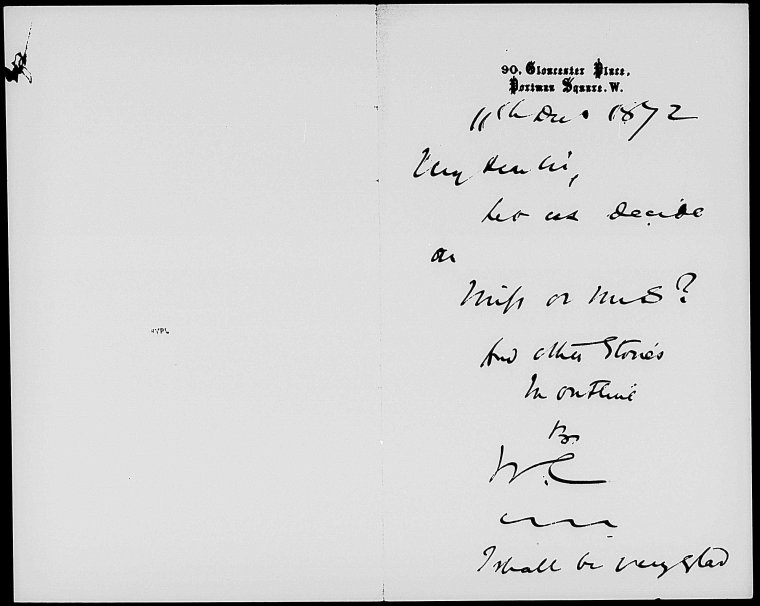 90, Gloucester Place,
Portman Square. W.
11th Dec. 1872
My dear Sir,
Let us decide
on
Miss or Mrs?
And other Stories
In outline
By
W.C
I shall be very glad
NYPL